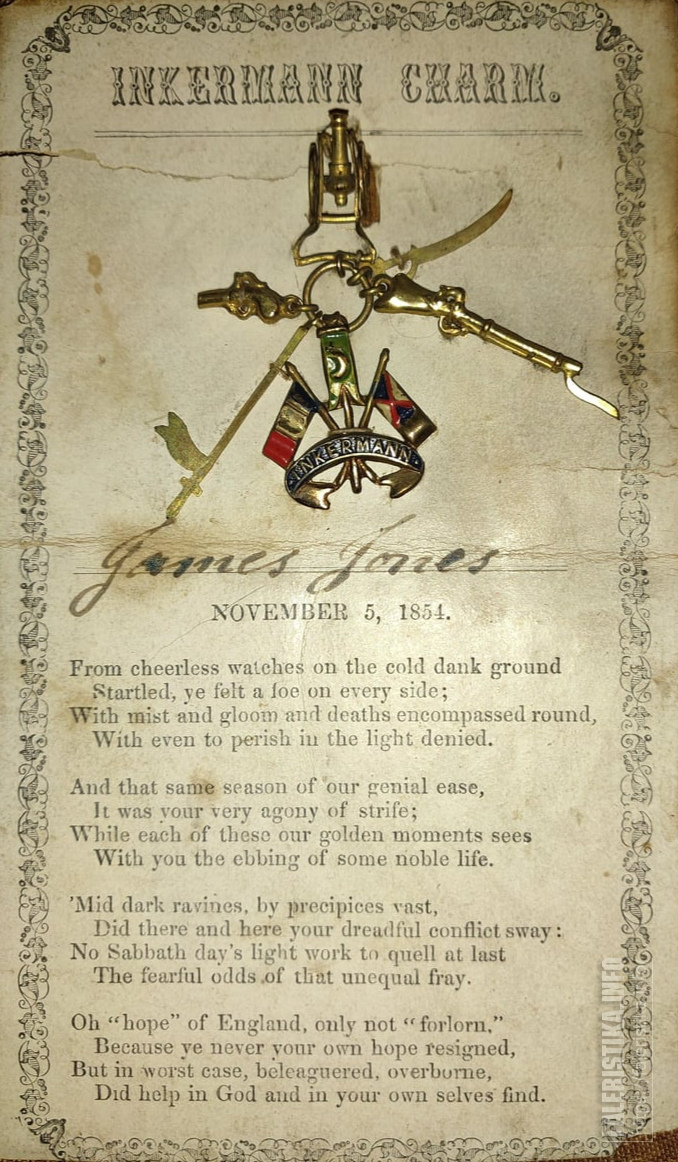 INKERMANN CHARM.
INKERMANN
James Jones
NOVEMBER 5, 1854.
From cheerless watches on the cold dank ground
Startled, ye felt a foe on every side;
With mist and gloom and deaths encompassed round,
With even to perish in the light denied.
And that same season of our genial ease,
It was your very agony of strife;
While each of these our golden moments sees
With you the ebbing of some noble life.
'Mid dark ravines, by precipices vast,
Did there and here your dreadful conflict sway:
No Sabbath day's light work to quell at last
The fearful odds of that unequal fray.
Oh "hope" of England, only not "forlorn,"
Because ye never your own hope resigned,
But in worst case, beleaguered, overborne,
Did help in God and in your own selves find.
FALERISTIKA.INFO